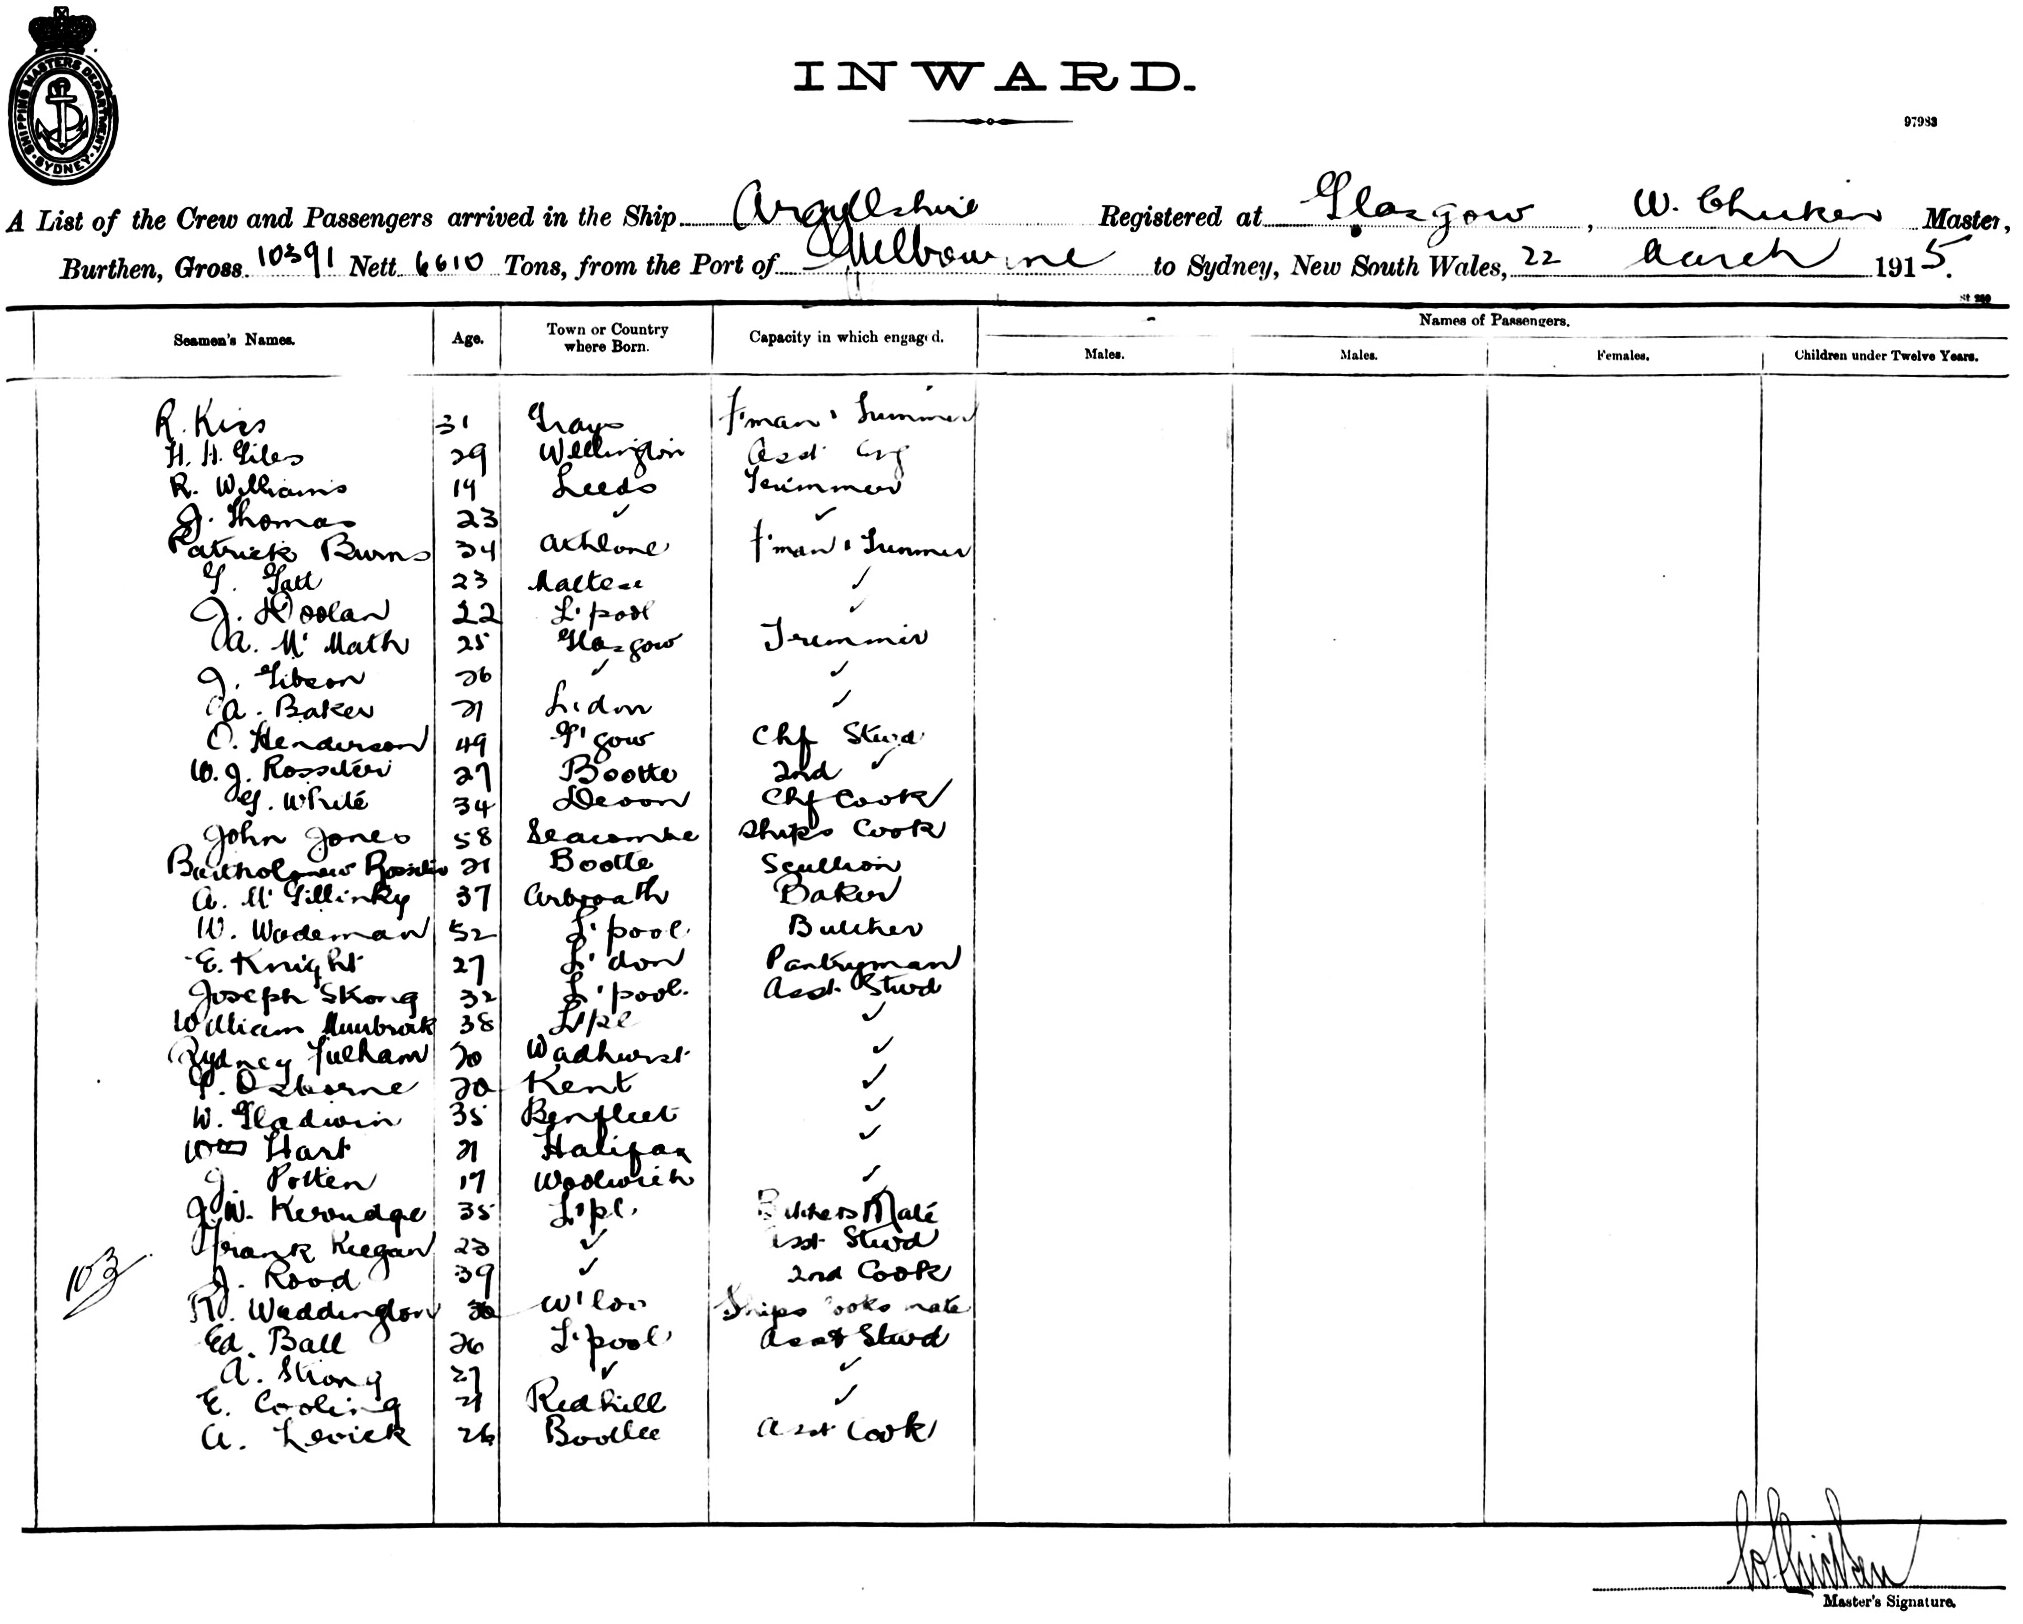 SHIPPING MASTERS DEPARTMENT. SYDNEY.
INWARD.
97983
A List of the Crew and Passengers arrived in the Ship Argyllshire Registered at Glasgow, W. Chicken Master,
Burthen, Gross 10391 Nett 6610 Tons, from the Port of Melbourne to Sydney, New South Wales, 22 March 1915.
St 260
Seamen's Names. Age. Town or Country where Born. Capacity in which engaged. Names of Passengers.
Males. Males. Females. Children under Twelve Years.
R. Kiss 31 Grays F'man & Trimmer
H. H. Giles 29 Wellington Asst Eng
R. Williams 19 Leeds Trimmer
J. Thomas 23 ✓ ✓
Patrick Burns 34 Athlone F'man & Trimmer
G. Gatt 23 Maltese ✓
J. Doolan 22 L'pool ✓
A. McMath 25 Glasgow Trimmer
J. Gibson 26 ✓ ✓
A. Baker 21 L'don ✓
O. Henderson 49 G'gow Chf Stwd
W. J. Rossiter 27 Bootle 2nd ✓
G. White 34 Devon Chf Cook
John Jones 58 Seacombe Ships Cook
Bartholomew Rossiter 21 Bootle Scullion
A. McGillinky 37 Arbroath Baker
W. Wademan 52 L'pool Butcher
E. Knight 27 L'don Pantryman
Joseph Skong 32 L'pool Asst Stwd
William 38 L'pl ✓
Sydney Fulham 20 Wadhurst ✓
Osborne 20 Kent ✓
W. Gladwin 35 Benfleet ✓
Hart 21 Halifax ✓
J. Potten 17 Woolwich ✓
J. W. Kerrudge 35 L'pl. Butchers Mate
Frank Keegan 23 ✓ Asst Stwd
J. Rood 39 ✓ 2nd Cook
103
R. Waddington 30 W'loo Ships Cooks mate
Ed. Ball 26 L'pool Asst Stwd
A. Strong 27 ✓ ✓
E. Cooling 21 Redhill ✓
A. Levick 26 Bootle Asst Cook
W Chicken
Master's Signature.